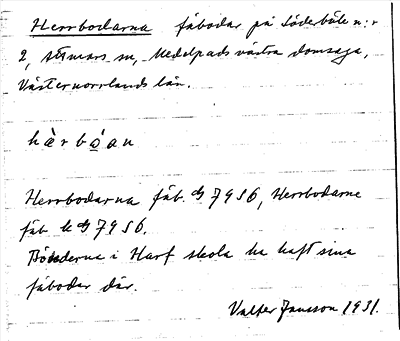 Herrbodarna fäbodar på Söderbölen:r
2, Attmars sn, Medelpads västra domsaga,
Västernorrlands län.
hèrbóan
Herrbodarna fäb. dg 7956, Herrbodarne
fäb. k dg 7956.
Bönderna i Harf skola ha haft sina
fäbodar där.
Valter Jansson 1931.